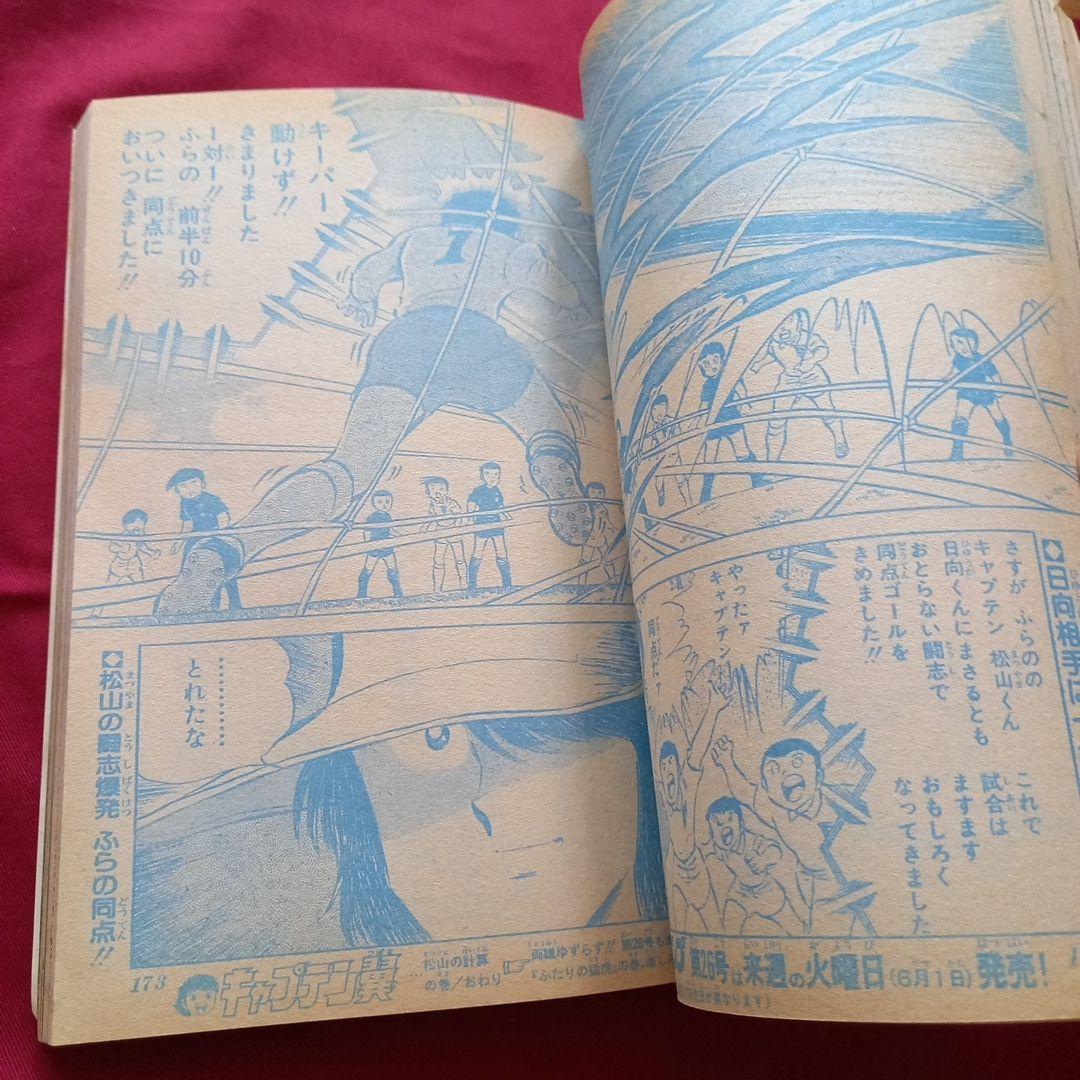 さすが ふらのの
キャプテン 松山くん
日向くんにまさるとも
おとらない闘志で
同点ゴールを
きめました!!
これで
試合は
ますます
おもしろく
なってきました
やったァ
キャプテン
同点だァ
◆日向相手に
第26号は来週の火曜日(6月1日)発売!
キーパー
動けず!!
きまりました
1対1!!
ふらの 前半10分
ついに 同点に
おいつきました!!
………
とれたな
◆松山の闘志爆発 ふらの同点!!
173
キャプテン翼
松山の計算
の巻/おわり
両雄ゆずらず!! 第26号も
『ふたりの猛虎』の巻